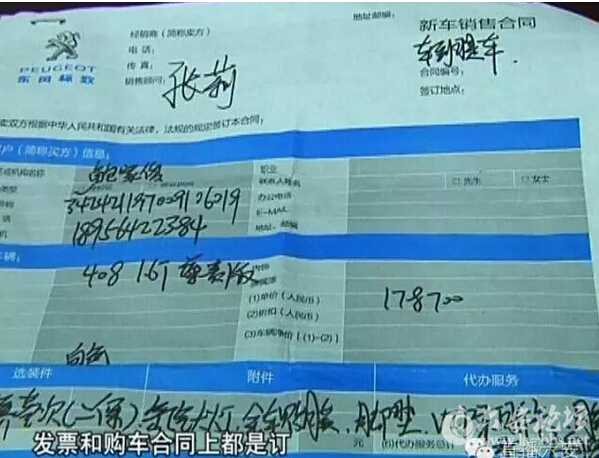 地址邮编:
新车销售合同
经销商（简称卖方）
电 话:
传 真:
销售顾问:
张莉
车到提车.
合同编号:
签订地点:
PEUGEOT
东风标致
卖双方根据中华人民共和国有关法律，法规的规定签订本合同:
户（简称买方）信息:
职业
联系人姓名
□先生
□女士
342421197009106019
办公电话
E-MAIL
18956422384
地址、邮编
车辆:
408 1.6T 尊贵版
内饰
(1)单价（人民币）
178700
(2)折扣（人民币）
(3)车辆净价 [(1)-(2)]
白色
选装件
附件
代办服务
脚垫
(6)代办服务总
发票和购车合同上都是订
六安论坛
直播六安